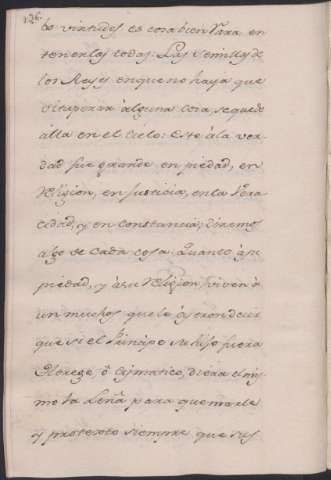 126.
to virtudes es cosa bien rara en
tenerlas todas: Las Semillas de
los Reyes en que no haya que
vituperar alguna cosa, se quedó
alla en el Cielo: Este à la ver
dad fue grande en piedad, en
religion, en Justicia, en la Vera
cidad, y en constancia; diremos
algo de cada cosa: Quanto à su
piedad, y à su Religion, viven à
un muchos que le oyeron decir
que si el Principe su hijo fuera
Herege, ò Cismatico, diera el mis
mo la leña para quemarle
y protextò siempre que sus